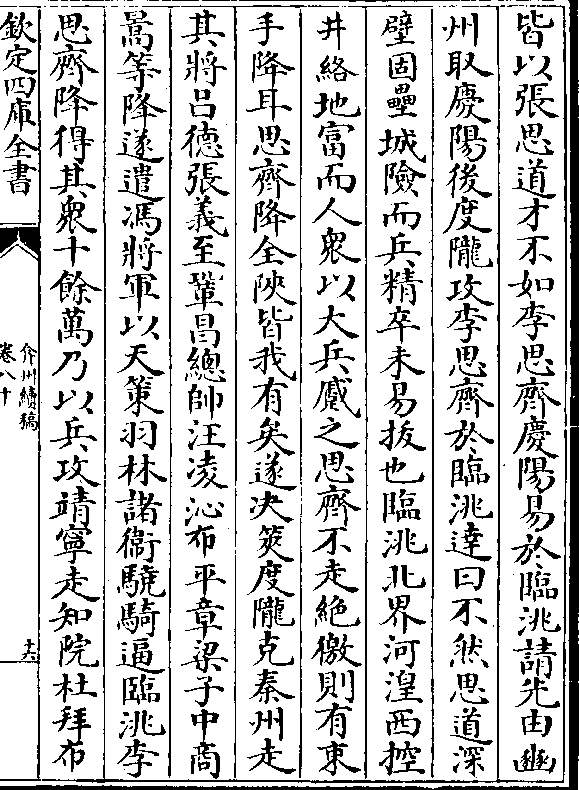 皆以張思道才不如李思齊慶陽易於臨洮請先由豳
州取慶陽後度隴攻李思齊於臨洮達曰不然思道深
壁固壘城險而兵精卒未易拔也臨洮北界河湟西控
井絡地富而人衆以大兵蹙之思齊不走絶徼則有束
手降耳思齊降全陜皆我有矣遂決筴度隴克秦州走
其將吕德張義至鞏昌總帥汪凌沁布平章梁子中商
暠等降遂遣馮將軍以天策羽林諸衞驍騎逼臨洮李
思齊降得其衆十餘萬乃以兵攻靖寧走知院杜拜布
欽定四庫全書
弇州續稿
卷八十
十六